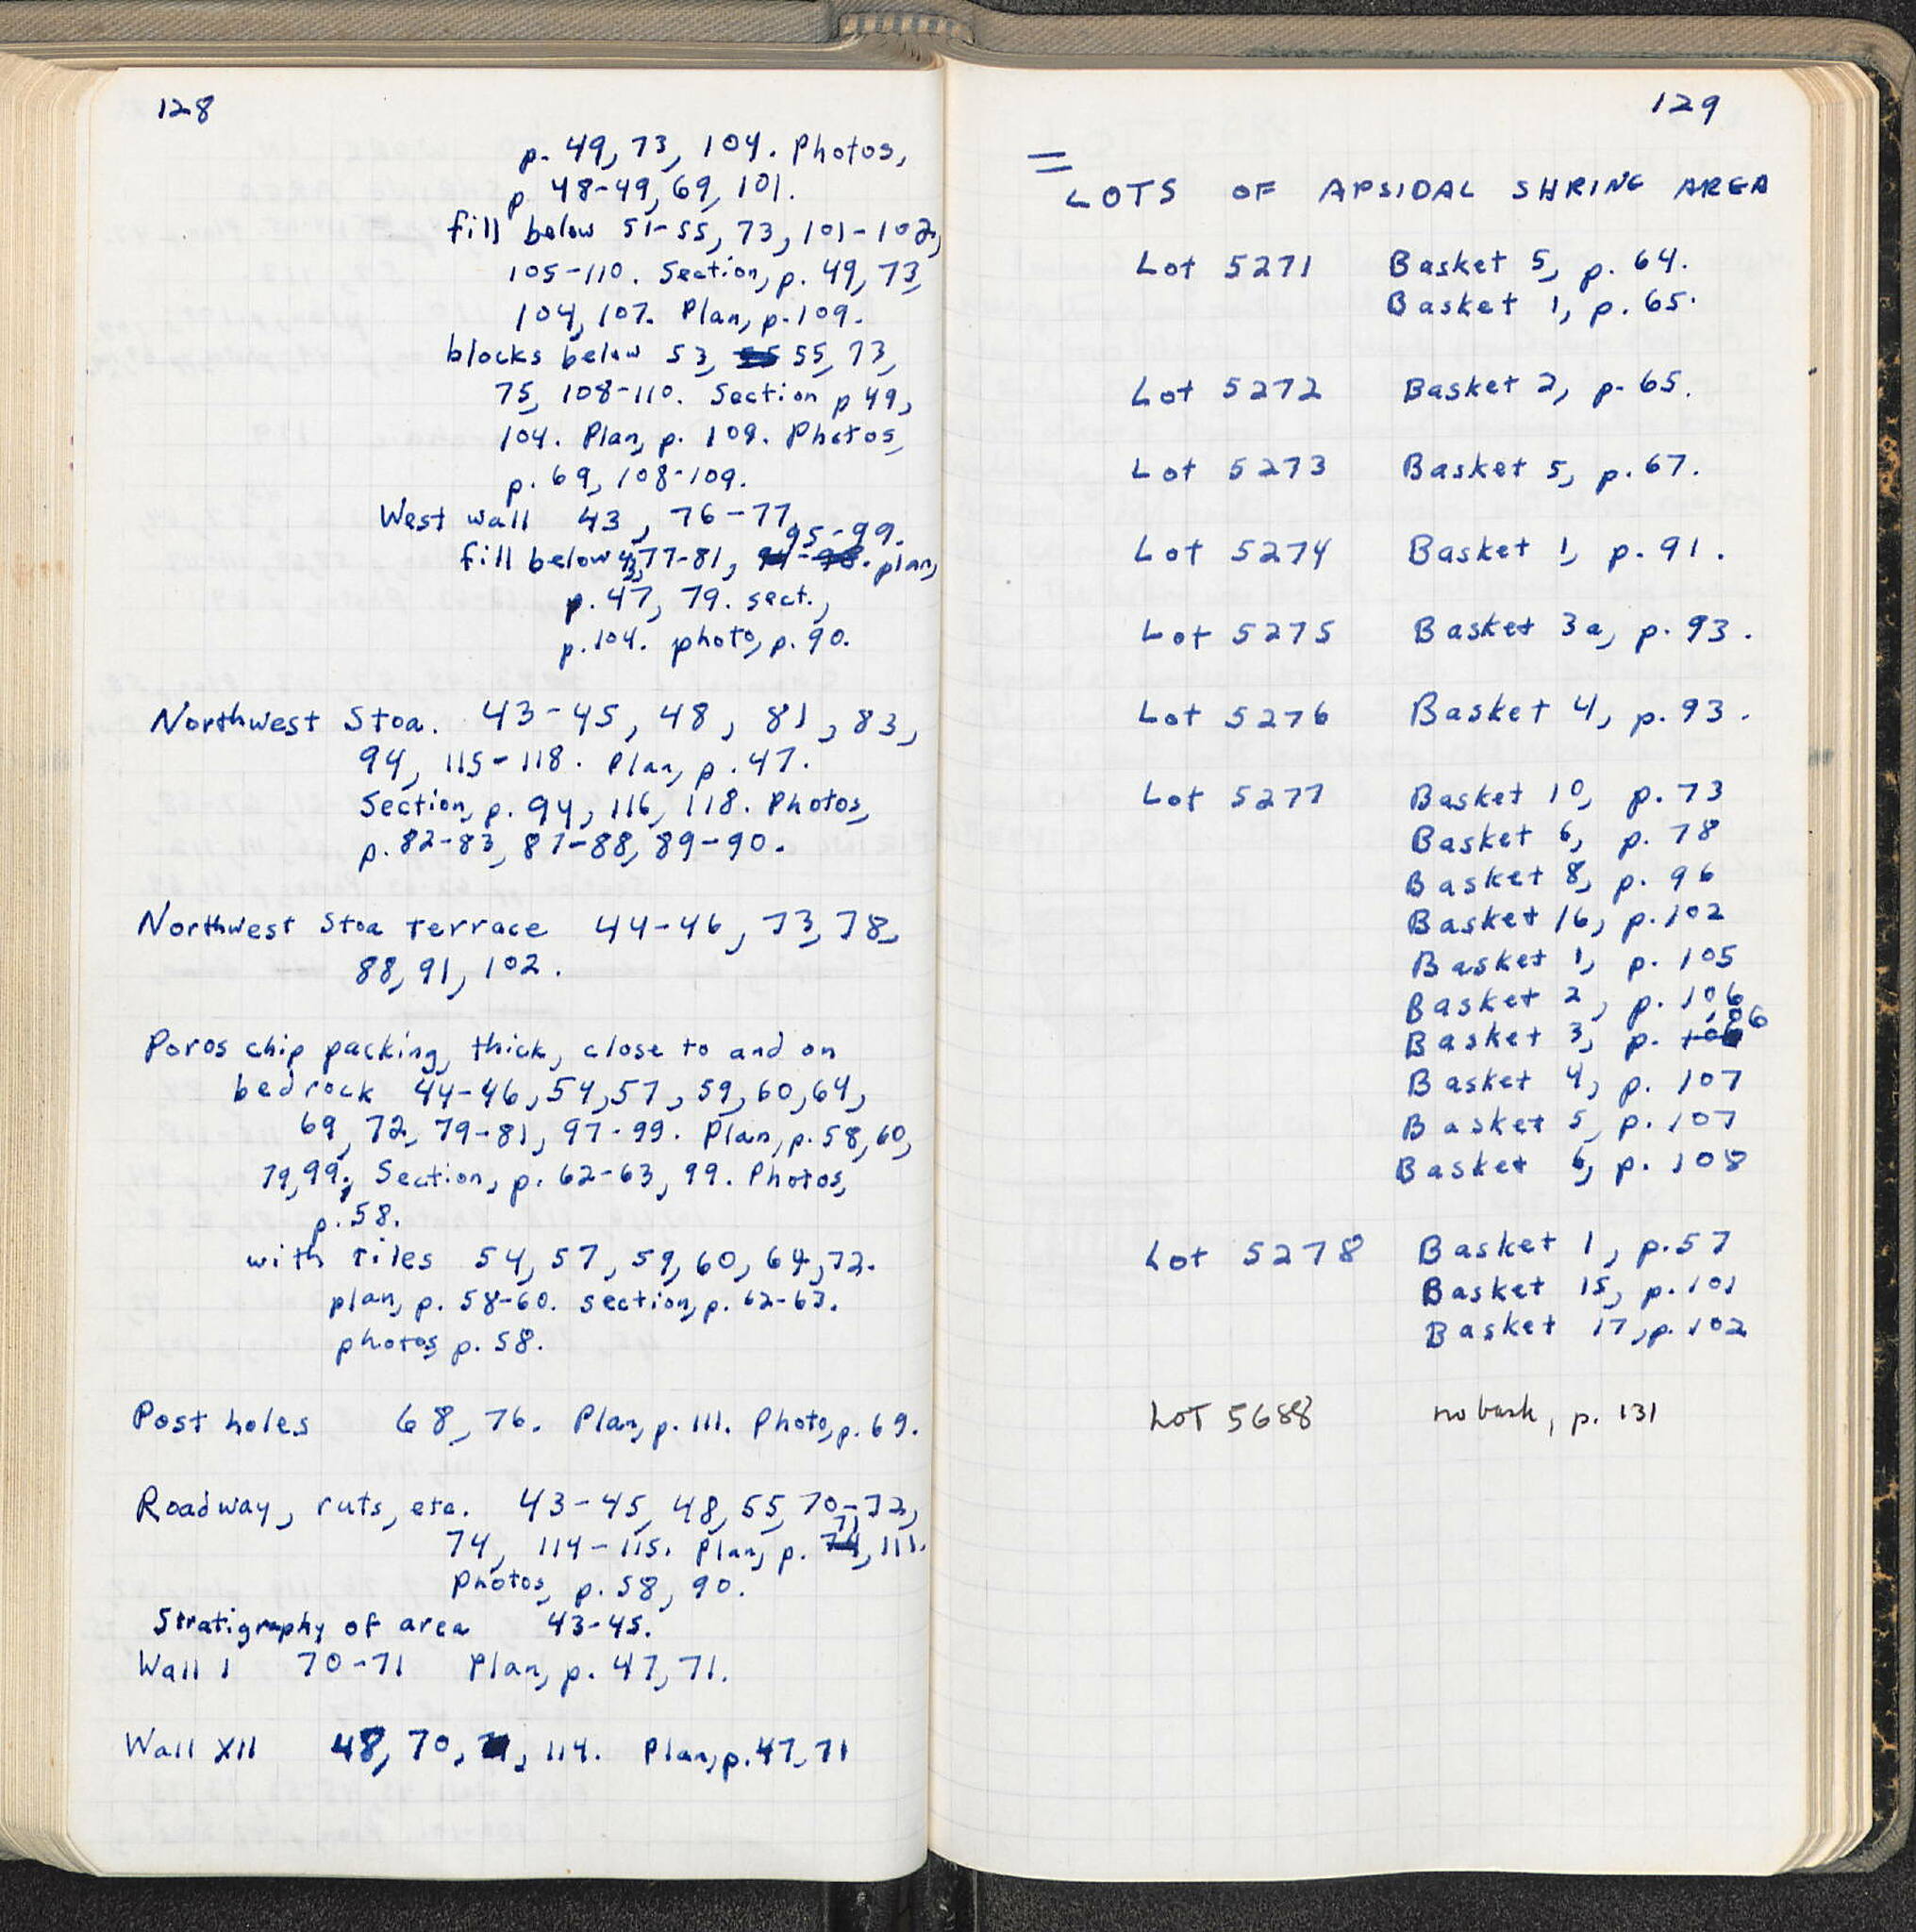 128
p. 49, 73, 104. Photos,
p. 48-49, 69, 101.
fill below 51-55, 73, 101-102,
105-110. Section, p. 49, 73,
104, 107. Plan, p. 109.
blocks below 53, 55, 73,
75, 108-110. Section p 49,
104. Plan, p. 109. Photos,
p. 69, 108-109.
West wall 43, 76-77,
95-99.
fill below 43, 77-81, plan,
p. 47, 79. sect.,
p. 104. photo, p. 90.
Northwest Stoa. 43-45, 48, 81, 83,
94, 115-118. Plan, p. 47.
Section, p. 94, 116, 118. Photos,
p. 82-83, 87-88, 89-90.
Northwest Stoa Terrace 44-46, 73, 78,
88, 91, 102.
Poros chip packing, thick, close to and on
bedrock 44-46, 54, 57, 59, 60, 64,
69, 72, 79-81, 97-99. Plan, p. 58, 60,
79, 99. Section, p. 62-63, 99. Photos,
p. 58.
with tiles 54, 57, 59, 60, 64, 72.
plan, p. 58-60. section, p. 62-63.
photos, p. 58.
Post holes 68, 76. Plan, p. 111. Photo, p. 69.
Roadway, ruts, etc. 43-45, 48, 55, 70-72,
74, 114-115. Plan, p. 71, 111.
Photos, p. 58, 90.
Stratigraphy of area 43-45.
Wall I 70-71 Plan, p. 47, 71.
Wall XII 48, 70, 114. Plan, p. 47, 71
129
LOTS OF APSIDAL SHRINE AREA
Lot 5271 Basket 5, p. 64.
Basket 1, p. 65.
Lot 5272 Basket 2, p. 65.
Lot 5273 Basket 5, p. 67.
Lot 5274 Basket 1, p. 91.
Lot 5275 Basket 3a, p. 93.
Lot 5276 Basket 4, p. 93.
Lot 5277 Basket 10, p. 73
Basket 6, p. 78
Basket 8, p. 96
Basket 16, p. 102
Basket 1, p. 105
Basket 2, p. 106
Basket 3, p. 106
Basket 4, p. 107
Basket 5, p. 107
Basket 6, p. 108
Lot 5278 Basket 1, p. 57
Basket 15, p. 101
Basket 17, p. 102
LOT 5688 no bask, p. 131